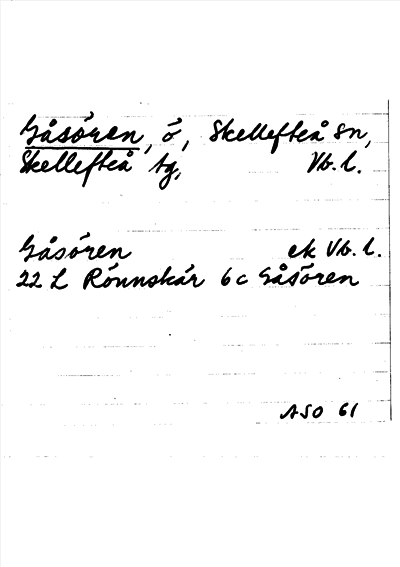 Gåsören, ö, Skellefteå sn,
Skellefteå tg, Vb. l.
Gåsören ek Vb. l.
22 L Rönnskär 6c Gåsören
ASO 61